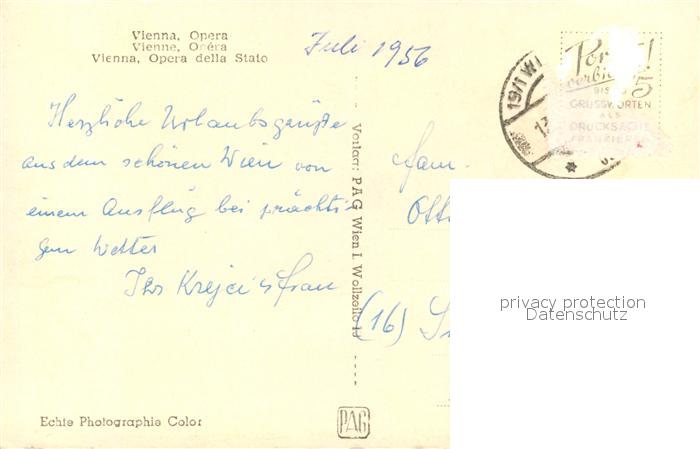 Vienna, Opera
Vienne, Opéra
Vienna, Opera della Stato
Juli 1956
Herzliche Urlaubsgrüße
aus dem schönen Wien von
einem Ausflug bei prächti-
gen Wetter
Ihr Krejci u. Frau
Echte Photographie Color
Verlag: PAG Wien I. Wollzeile
PAG
19/1 WI
BIS 5
GRUSSWORTEN
ALS
DRUCKSACHE
FRANKIEREN
Fam.
Otto
(16)
privacy protection
Datenschutz